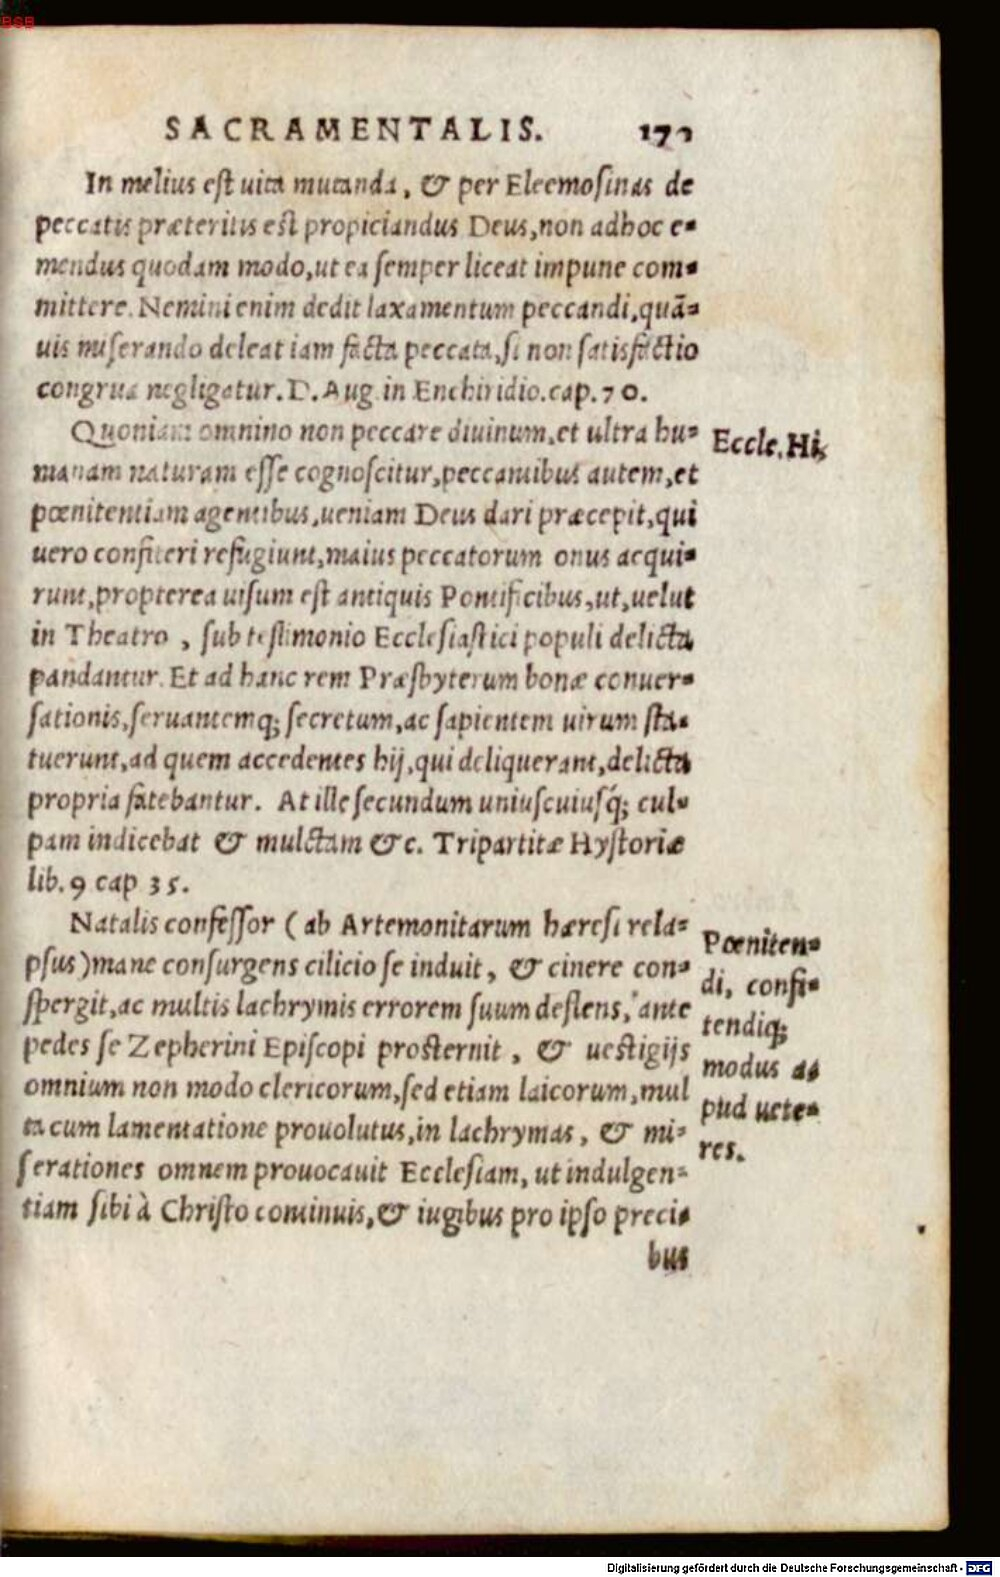 BSB
SACRAMENTALIS.
In melius est uita mutanda, & per Eleemosinas de
peccatis præteritis est propiciandus Deus, non adhoc e-
mendus quodam modo, ut ea semper liceat impune com-
mittere. Nemini enim dedit laxamentum peccandi, quã-
uis miserando deleat iam facta peccata, si non satisfactio
congrua negligatur. D. Aug. in Enchiridio. cap. 70.
Quoniam omnino non peccare diuinum, et ultra hu-
manam naturam esse cognoscitur, peccantibus autem, et
pœnitentiam agentibus, ueniam Deus dari præcepit, qui
uero confiteri refugiunt, maius peccatorum onus acqui-
runt, propterea uisum est antiquis Pontificibus, ut, uelut
in Theatro, sub testimonio Ecclesiastici populi delicta
pandantur. Et ad hanc rem Præsbyterum bonæ conuer-
sationis, seruantemq; secretum, ac sapientem uirum sta-
tuerunt, ad quem accedentes hij, qui deliquerant, delicta
propria fatebantur. At ille secundum uniuscuiusq́; cul-
pam indicebat & mulctam &c. Tripartitæ Hystoriæ
lib. 9 cap 35.
Eccle. Hi
Natalis confessor (ab Artemonitarum hæresi rela-
psus) mane consurgens cilicio se induit, & cinere con-
spergit, ac multis lachrymis errorem suum deflens, ante
pedes se Zepherini Episcopi prosternit, & uestigijs
omnium non modo clericorum, sed etiam laicorum, mul
ta cum lamentatione prouolutus, in lachrymas, & mi-
serationes omnem prouocauit Ecclesiam, ut indulgen-
tiam sibi à Christo continuis, & iugibus pro ipso preci-
bus
Pœniten-
di, confi-
tendiq;
modus a-
pud uete-
res.
Digitalisierung gefördert durch die Deutsche Forschungsgemeinschaft - DFG